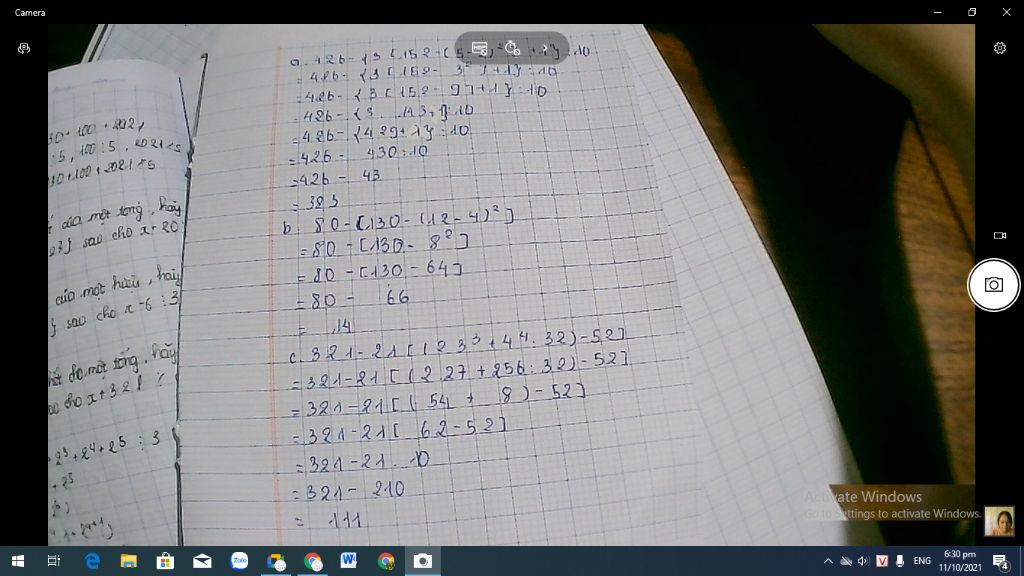 Camera
a. 426 - {3 [152 - (5 - 2)² + 1} : 10
= 426 - {3 [152 - 3² ] + 1} : 10
= 426 - {3 [152 - 9] + 1} : 10
= 426 - {3 . 143 + } : 10
= 426 - {429 + 1} : 10
= 426 - 430 : 10
= 426 - 43
= 383
b. 80 - [130 - (12 - 4)²]
= 80 - [130 - 8²]
= 80 - [130 - 64]
= 80 - 66
= 14
c. 321 - 21 [(2 3³ + 4⁴ : 32) - 52]
= 321 - 21 [(2 27 + 256 : 32) - 52]
= 321 - 21 [( 54 + 8) - 52]
= 321 - 21 [ 62 - 52]
= 321 - 21 . 10
= 321 - 210
= 111
30 + 100 + 2021
: 5, 100 : 5, 2021 : 5
30 + 100 + 2021 : 5
của một tổng, hãy
sao cho x + 20
của một hiệu, hãy
} sao cho x - 6 : 3
cho một tổng, hãy
cho x + 32
2³ + 2⁴ + 2⁵ : 3
+ 2⁵
Activate Windows
Go to Settings to activate Windows.
Zalo
ENG
6:30 pm
11/10/2021
4